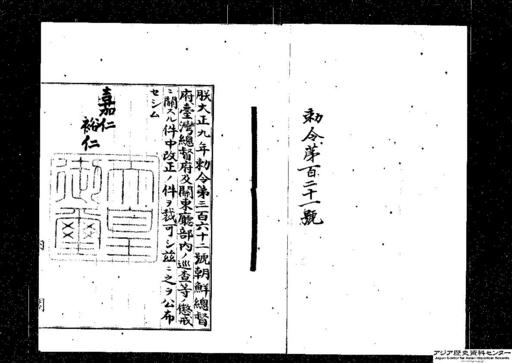 勅令第百二十一號
朕大正九年勅令第三百六十二號朝鮮總督
府臺灣總督府及關東廳部內ノ巡査等ノ懲戒
ニ關スル件中改正ノ件ヲ裁可シ茲ニ之ヲ公布
セシム
嘉仁
裕仁
天皇
御璽
内
閣
アジア歴史資料センター
Japan Center for Asian Historical Records